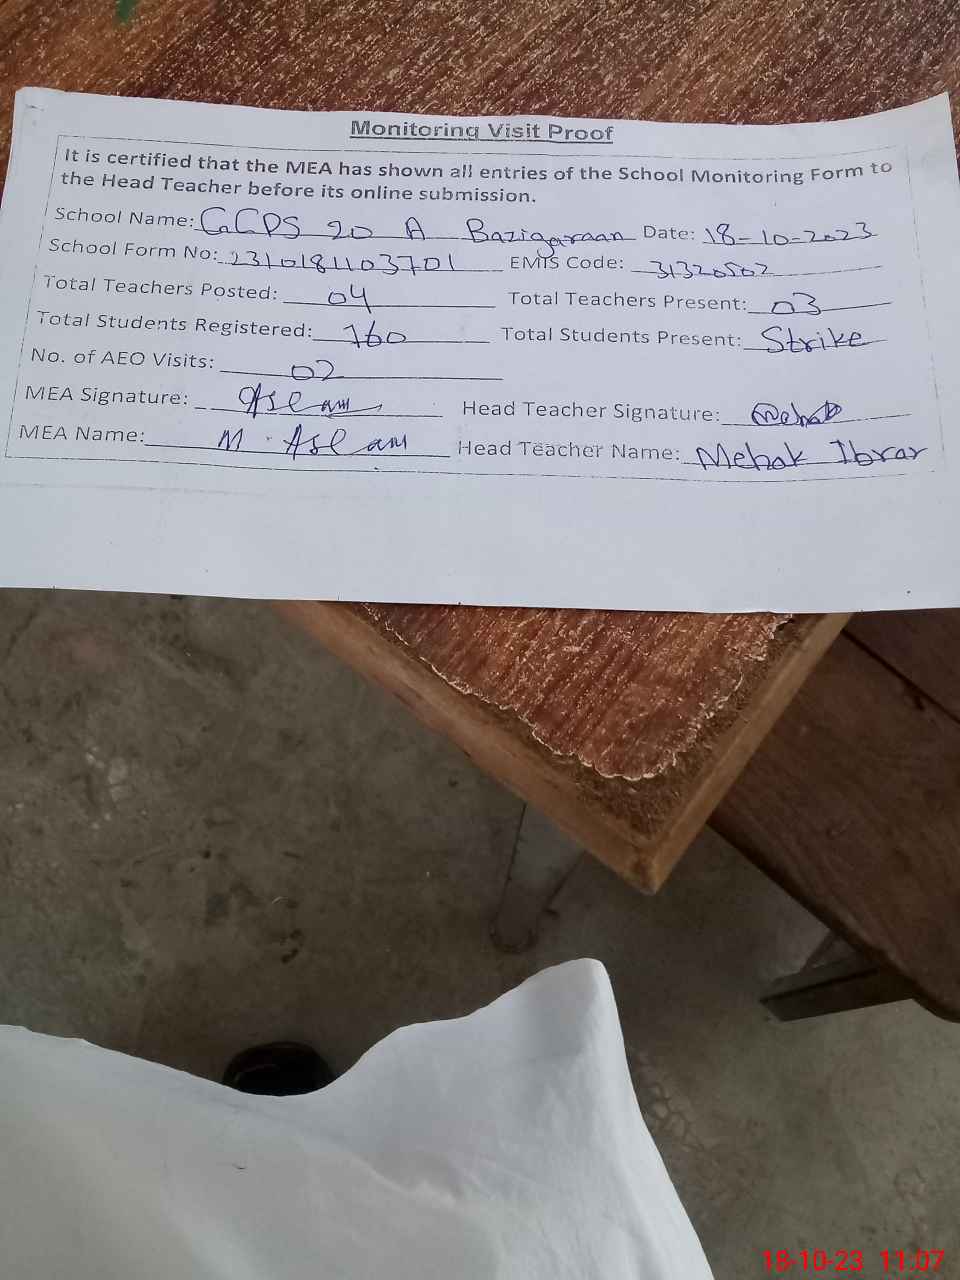 Monitoring Visit Proof
It is certified that the MEA has shown all entries of the School Monitoring Form to
the Head Teacher before its online submission.
School Name: GCPS 20 A Bazigaraan Date: 18-10-2023
School Form No: 2310181103701 EMIS Code: 31320502
Total Teachers Posted: 04 Total Teachers Present: 03
Total Students Registered: 160 Total Students Present: Strike
No. of AEO Visits: 02
MEA Signature: Aslam Head Teacher Signature: Mehak
MEA Name: M. Aslam Head Teacher Name: Mehak Ibrar
18-10-23 11:07